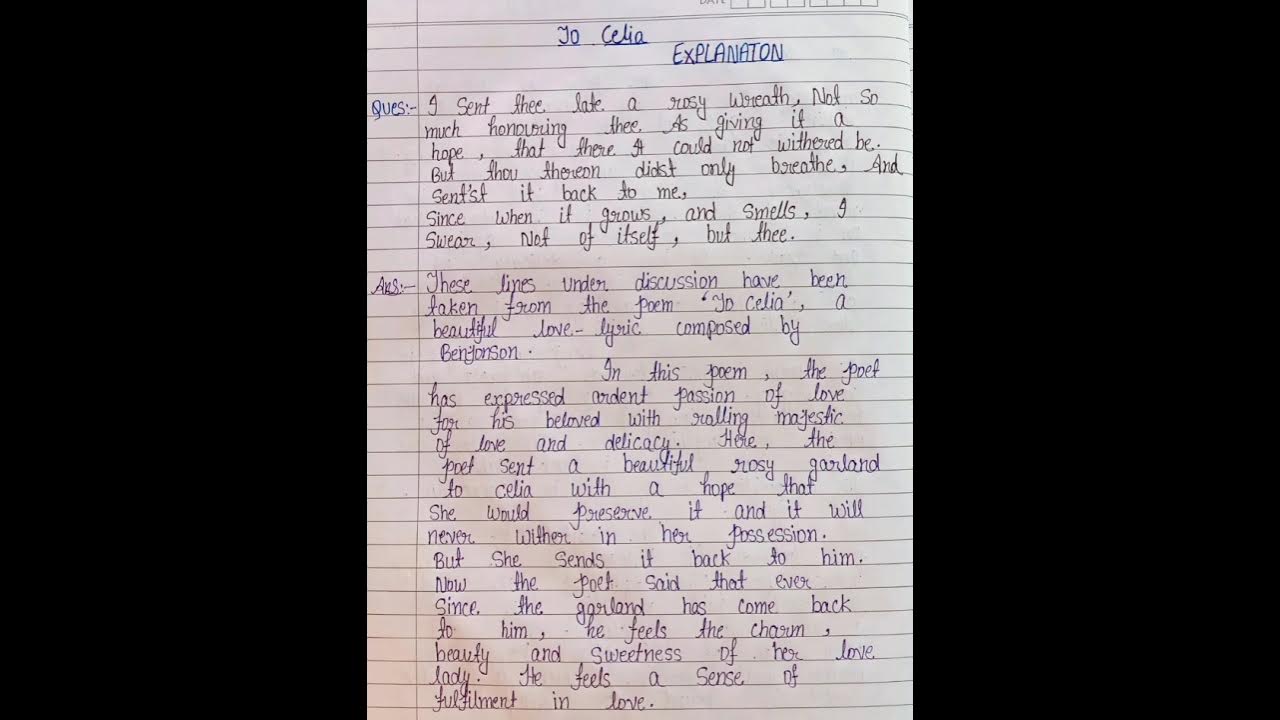 DATE
To Celia
EXPLANATON
Ques:- I sent thee late a rosy wreath, Not so
much honouring thee. As giving it a
hope, that there It could not withered be.
But thou thereon didst only breathe, And
Sent'st it back to me,
Since when it grows, and smells, I
Swear, Not of itself, but thee.
Ans:- These lines under discussion have been
taken from the poem 'To Celia', a
beautiful love-lyric composed by
BenJonson.
In this poem, the poet
has expressed ardent passion of love
for his beloved with ralling majestic
of love and delicacy. Here, the
poet sent a beautiful rosy garland
to celia with a hope that
She would preserve it and it will
never wither in her possession.
But She Sends it back to him.
Now the poet said that ever
Since the garland has come back
to him, he feels the charm,
beauty and Sweetness of her love
lady. He feels a Sense of
fulfilment in love.